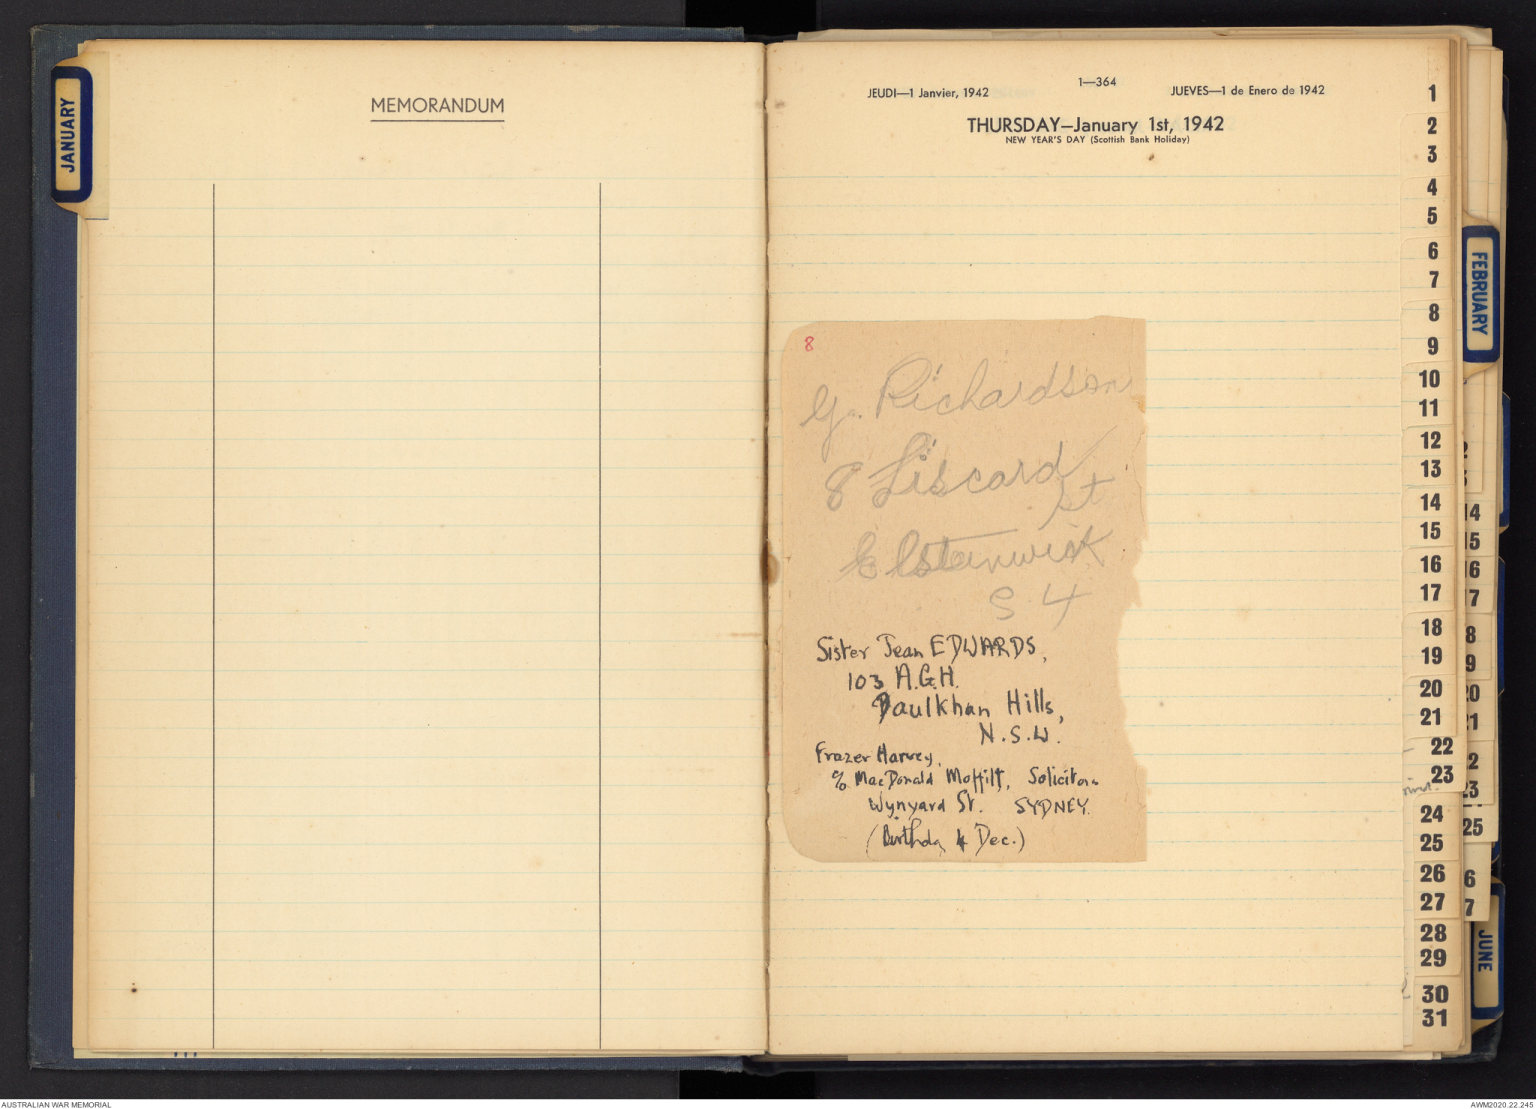 JANUARY
MEMORANDUM
1—364
JEUDI—1 Janvier, 1942
JUEVES—1 de Enero de 1942
THURSDAY—January 1st, 1942
NEW YEAR'S DAY (Scottish Bank Holiday)
8
G. Richardson
8 Liscard St
Elsternwick
S 4
Sister Jean EDWARDS,
103 A.G.H.
Baulkhan Hills,
N.S.W.
Frazer Harvey,
c/o MacDonald Moffitt, Solicitors
Wynyard St. SYDNEY.
(Birthday 4 Dec.)
1
2
3
4
5
6
7
8
9
10
11
12
13
14
15
16
17
18
19
20
21
22
23
24
25
26
27
28
29
30
31
FEBRUARY
14
15
16
17
18
19
20
21
22
23
25
26
27
JUNE
AUSTRALIAN WAR MEMORIAL
AWM2020.22.245